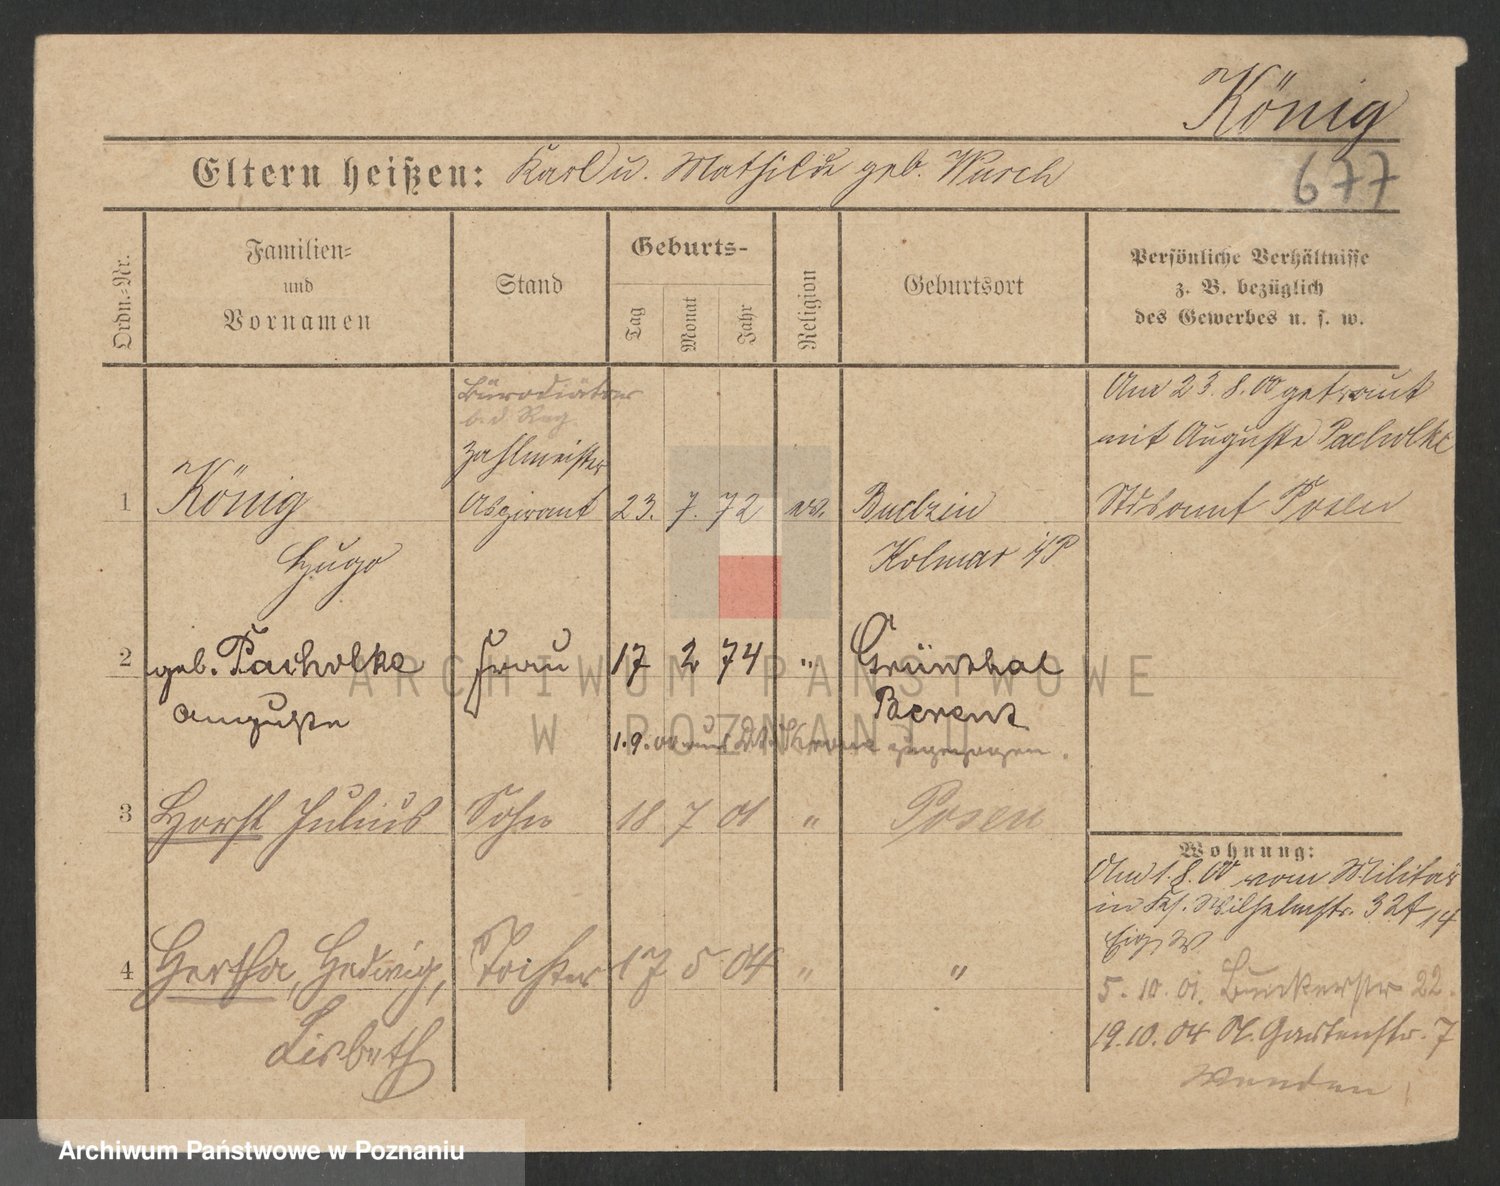 König
Eltern heißen: Karl u. Mathilde geb. Wursch
677
Ordn.-Nr.
Familien-
und
Vornamen
Stand
Geburts-
Tag
Monat
Jahr
Religion
Geburtsort
Persönliche Verhältnisse
z. B. bezüglich
des Gewerbes u. s. w.
Bürodiätar
b. d. Reg.
Zahlmeister
1 König Aspirant 23. 7. 72 ev. Budzin
Hugo Kolmar i/P
Am 23.8.00 getraut
mit Auguste Pacholke
Stdsamt Posen
2 geb. Pacholke Frau 17 2 74 " Grünthal
Auguste Berent
1.9.00 zugezogen.
3 Horst Julius Sohn 18 7 01 " Posen
4 Hertha, Hedwig, Tochter 17 5 04 " "
Lisbeth
Wohnung:
Am 1.8.00 vom Militär
in Wilhelmstr. 32
5.10.01. Bunkerstr 22.
19.10.04 Gartenstr. 7
wenden
ARCHIWUM PAŃSTWOWE
W POZNANIU
Archiwum Państwowe w Poznaniu